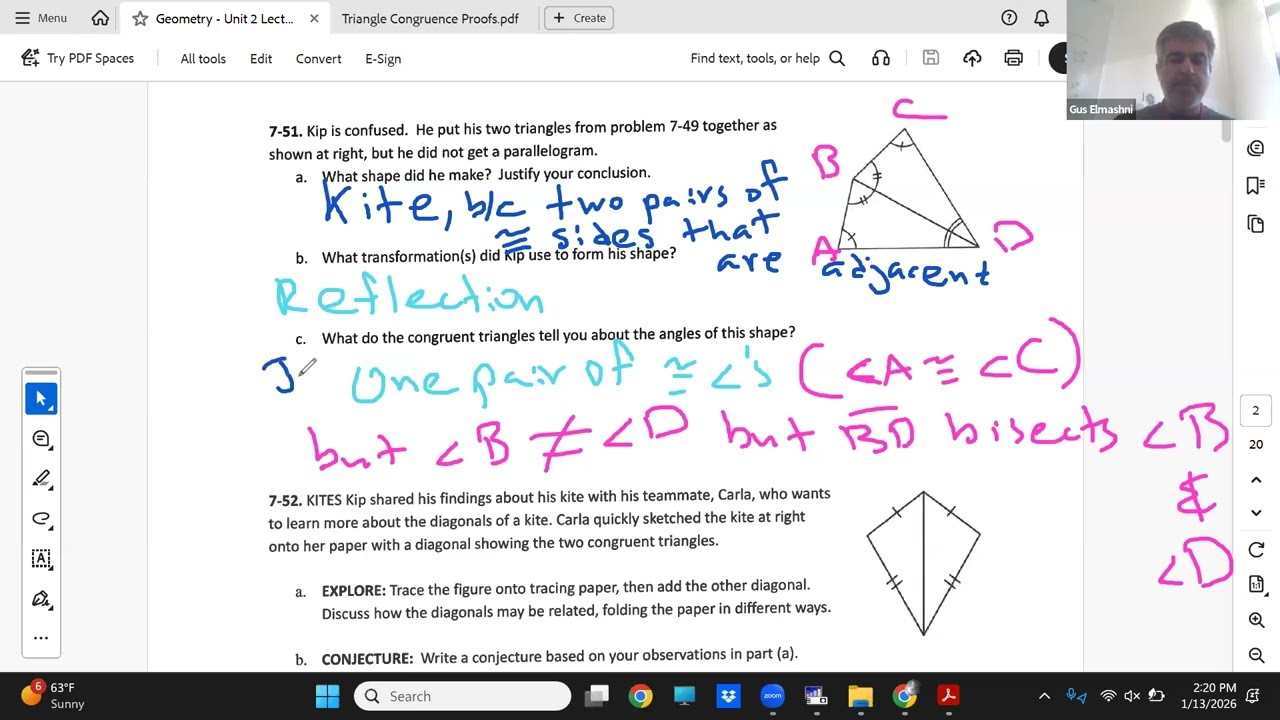 Menu
Geometry - Unit 2 Lect...
Triangle Congruence Proofs.pdf
Create
Try PDF Spaces
All tools
Edit
Convert
E-Sign
Find text, tools, or help
Gus Elmashni
7-51. Kip is confused. He put his two triangles from problem 7-49 together as
shown at right, but he did not get a parallelogram.
a. What shape did he make? Justify your conclusion.
Kite, b/c two pairs of
≅ sides that
are adjacent
C
B
A
D
b. What transformation(s) did Kip use to form his shape?
Reflection
c. What do the congruent triangles tell you about the angles of this shape?
One pair of ≅ ∠'s (∠A ≅ ∠C)
but ∠B ≠ ∠D but BD bisects ∠B
&
∠D
7-52. KITES Kip shared his findings about his kite with his teammate, Carla, who wants
to learn more about the diagonals of a kite. Carla quickly sketched the kite at right
onto her paper with a diagonal showing the two congruent triangles.
a. EXPLORE: Trace the figure onto tracing paper, then add the other diagonal.
Discuss how the diagonals may be related, folding the paper in different ways.
b. CONJECTURE: Write a conjecture based on your observations in part (a).
2
20
6
63°F
Sunny
Search
zoom
2:20 PM
1/13/2026